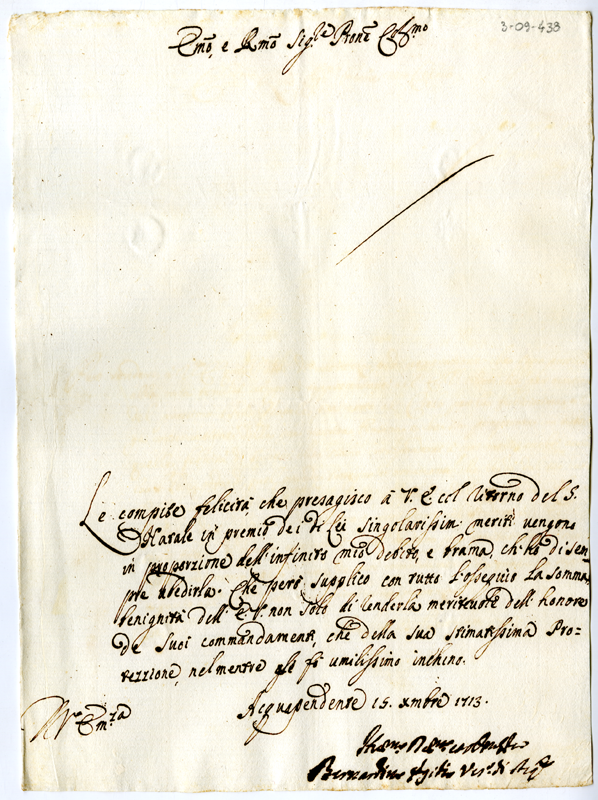 3-09-433
Emo, e Rmo Sig.re Prone Col.mo
Le compite felicità che presagisco à V. E. col ritorno del S.
Natale in premio dei di Lei singolarissim. meriti vengono
in proporzione dell'infinito mio debito, e brama, ch'hò di sem
pre ubedirla. Che però supplico con tutto l'ossequio la somma
benignità dell'E. V. non solo di renderla meritevole dell'honore
de Suoi commandamenti, che della sua stimatissima Pro=
tezzione, nel mentre le fò umilissimo inchino.
Acquapendente 15. Xmbre 1713.
V.ra Em.za
Bernardino Vesc. di Acq.